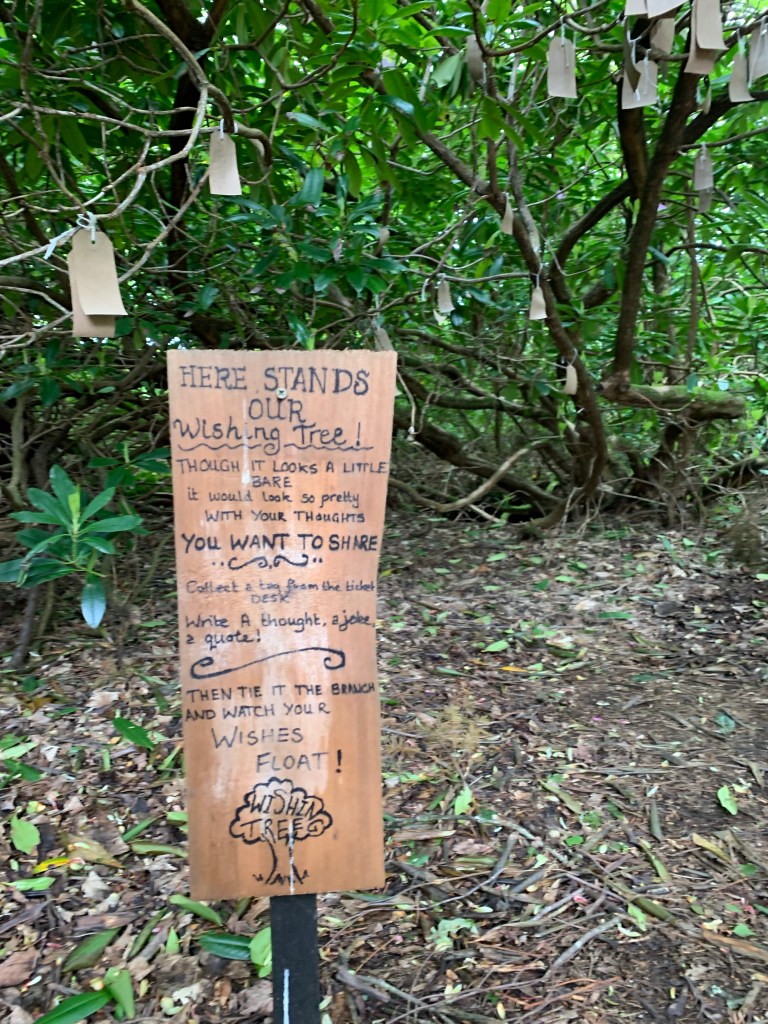 HERE STANDS
OUR
Wishing Tree!
THOUGH IT LOOKS A LITTLE
BARE
it would look so pretty
WITH YOUR THOUGHTS
YOU WANT TO SHARE
Collect a tag from the ticket
DESK
Write A thought, a joke,
a quote!
THEN TIE IT THE BRANCH
AND WATCH YOUR
WISHES
FLOAT!
WISHING
TREE